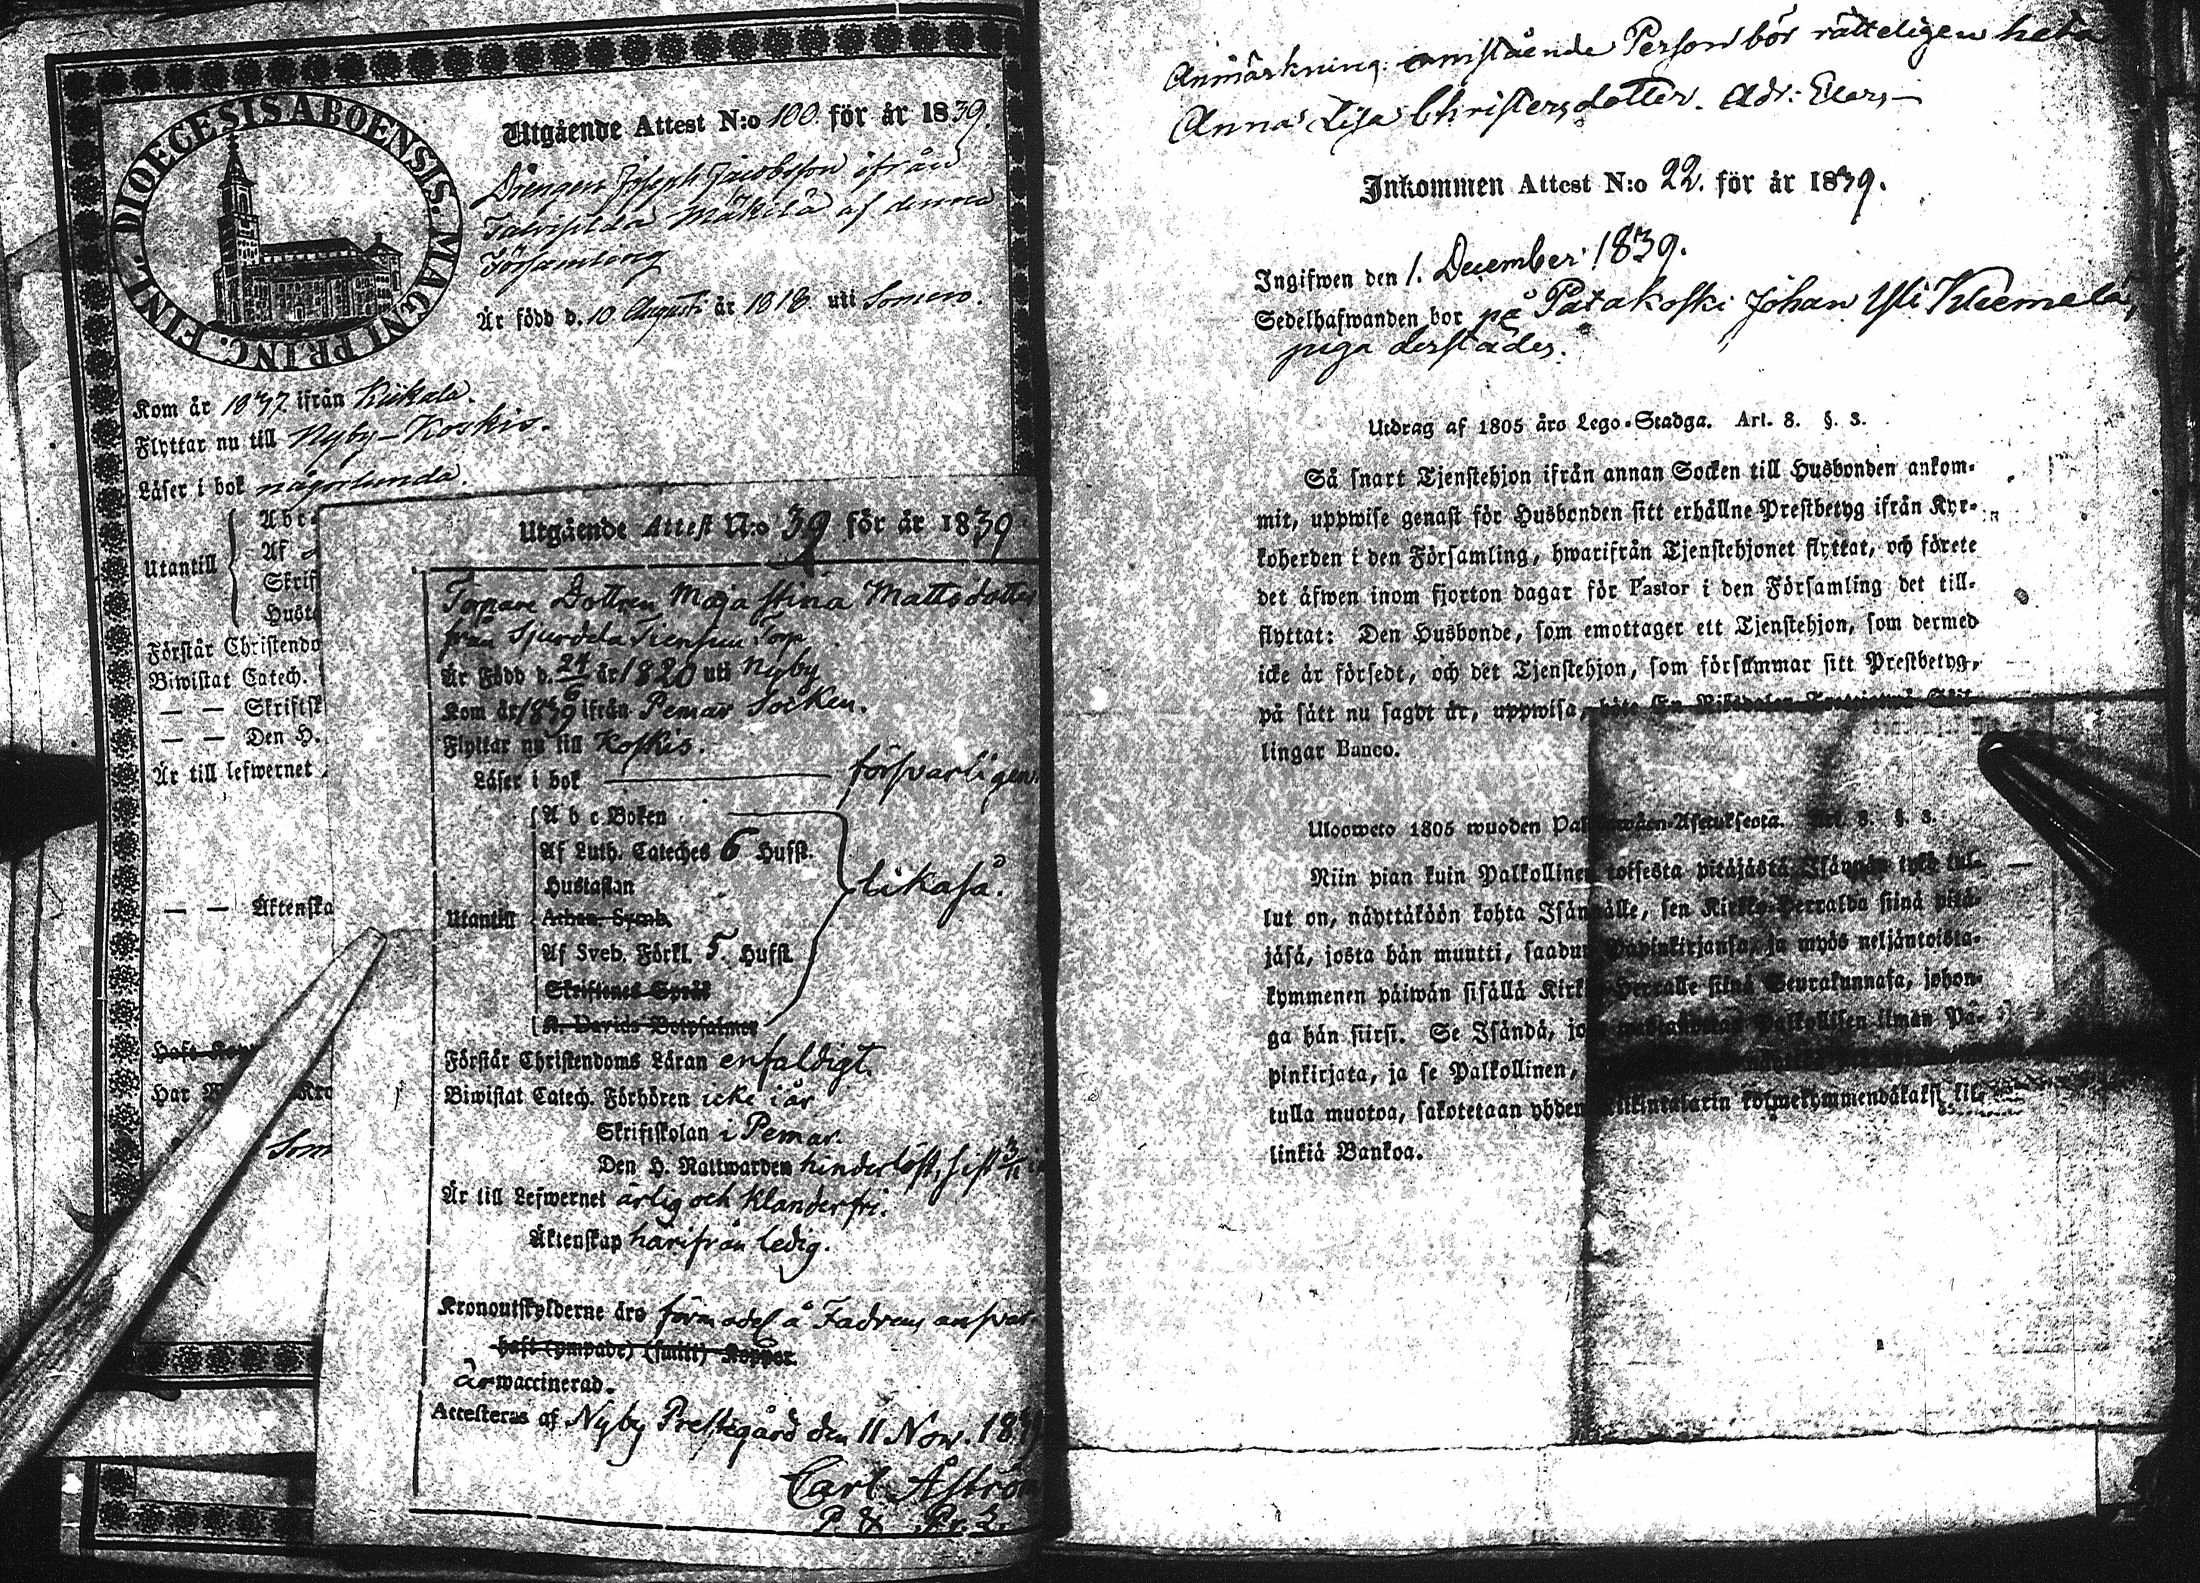 DIOECESIS ABOENSIS. MAGNI PRINC. FINL.
Utgående Attest N:o 100 för år 1839.
Drengen Joseph Jacobsson ifrån
Mäkilä af denna
Församling
Är född d. 10 Augusti år 1818 uti Somero.
Kom år 1837 ifrån Kiikala.
Flyttar nu till Nyby-Koskis.
Läser i bok någorlunda.
Utantill
Förstår Christendo
Biwistat Catech.
— — Skriftsk
— — Den H.
Är till lefwernet
— — Äktenska
Som
Utgående Attest N:o 39 för år 1839
Torpare Dottren Maja Stina Mattsdotter
från Sjurdela Torp
Är Född d. 24/6 år 1820 uti Nyby
Kom år 1839 ifrån Pemar Socken.
Flyttar nu till Koskis.
Läser i bok försvarligen
Utantill
A b c Boken
Af Luth. Cateches 6 Hufst.
Hustaflan
Athan. Symb.
Af Sveb. Förkl. 5. Hufst.
Skriftenes Språk
K. Davids Botpsalmer
likaså.
Förstår Christendoms Läran enfaldigt
Biwistat Catech. Förhören icke i år
Skriftskolan i Pemar.
Den H. Nattwarden hinderlöst, sist 3/11
Är till Lefwernet ärlig och klanderfri.
Äktenskap härifrån ledig.
Kronoutskylderne äro å Fadrens answar
haft (ympade) (smitt) Koppor.
är waccinerad.
Attesteras af Nyby Prestegård den 11 Nov. 1839
Carl Åström
Anmärkning: omstående Person bör rätteligen heta
Anna Lisa Christersdotter.
Inkommen Attest N:o 22. för år 1839.
Ingifwen den 1. December 1839.
Sedelhafwanden bor på Patakoski Johan Yli Kleemela,
piga derstädes.
Utdrag af 1805 års Lego-Stadga. Art. 8. §. 3.
Så snart Tjenstehjon ifrån annan Socken till Husbonden ankom-
mit, uppwise genast för Husbonden sitt erhållne Prestbetyg ifrån Kyr-
koherden i den Församling, hwarifrån Tjenstehjonet flyttat, och förete
det äfwen inom fjorton dagar för Pastor i den Församling det till-
flyttat: Den Husbonde, som emottager ett Tjenstehjon, som dermed
icke är försedt, och det Tjenstehjon, som försummar sitt Prestbetyg,
på sätt nu sagdt är, uppwisa, böte En Riksdaler Trettiotwå Skil-
lingar Banco.
Uloosweto 1805 wuoden Palkkawäen-Asetuksesta. Art. 8. §. 3.
Niin pian kuin Palkollinen toisesta pitäjästä Isännän tykö tul-
lut on, näyttäköön kohta Isännälle, sen Kirkko-Herralda siinä pitä-
jäsä, josta hän muutti, saadun Papinkirjansa, ja myös neljäntoista-
kymmenen päiwän sisällä Kirkko-Herralle siinä Seurakunnasa, johon-
ga hän siirsi. Se Isändä, joka Palkollisen ilman Pa-
pinkirjata, ja se Palkollinen,
tulla muotoa, sakotetaan yhden Riikintalarin kolmekymmendäkaksi kil-
linkiä Bankoa.